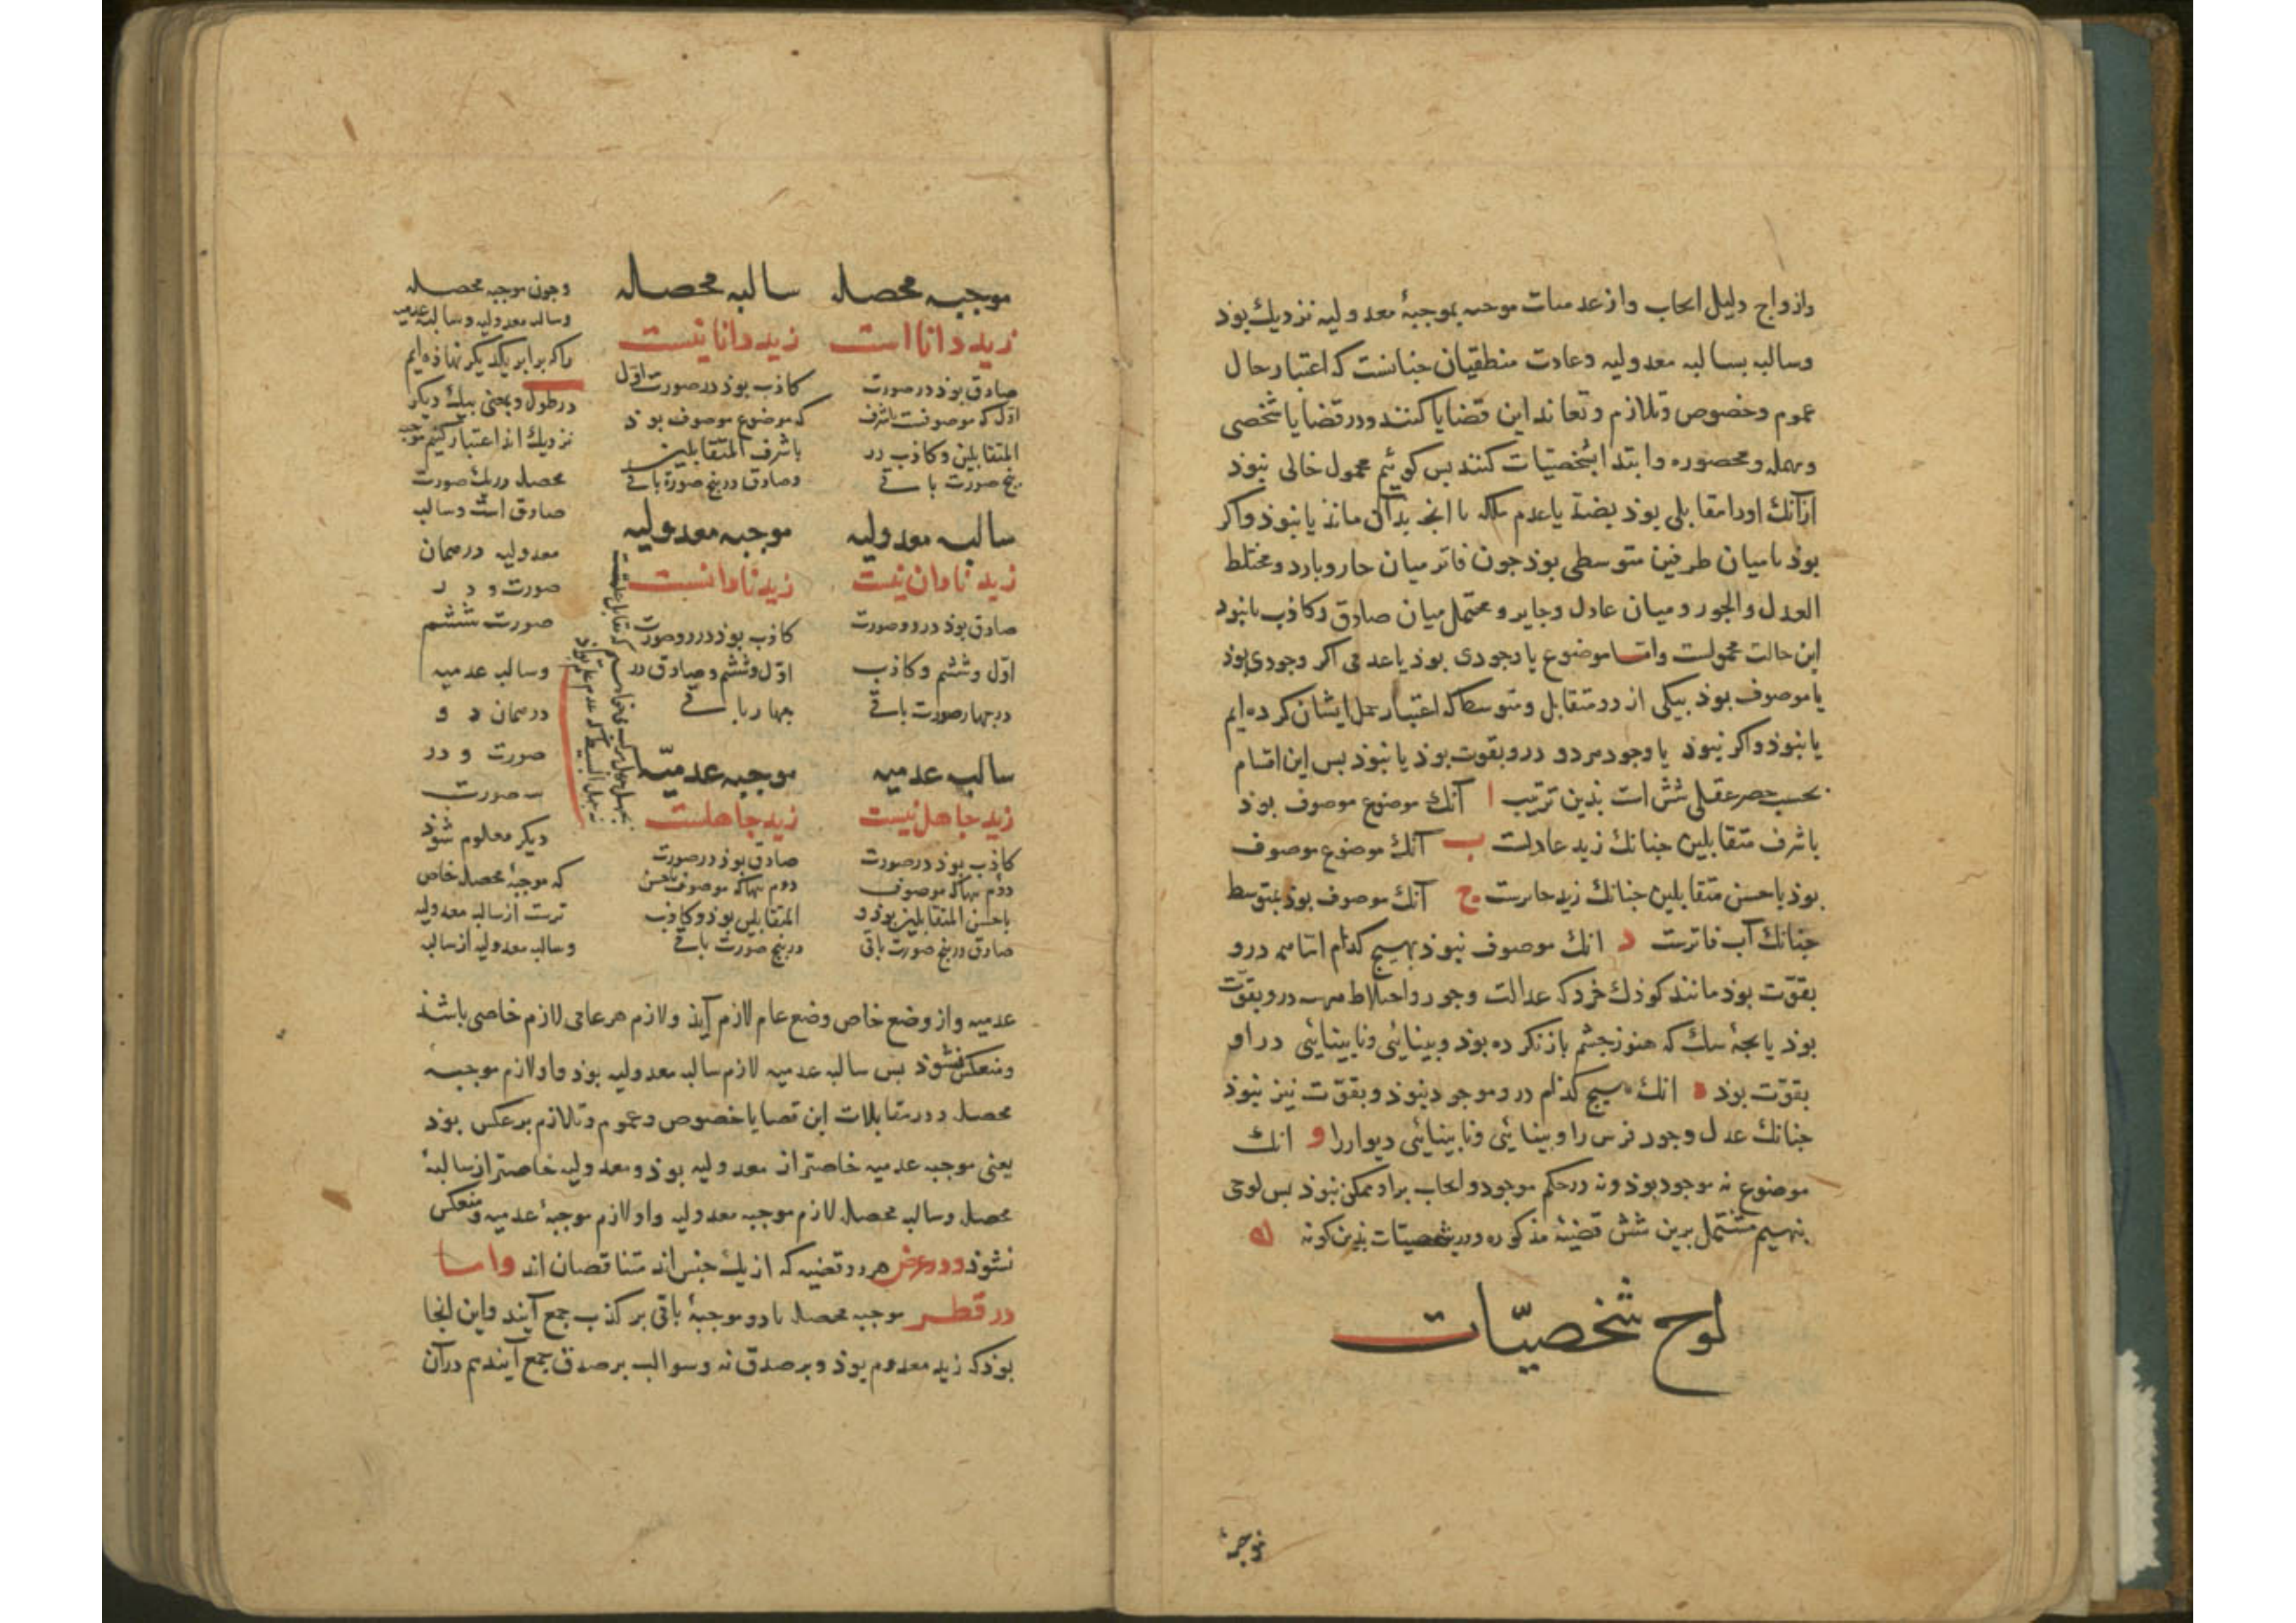 وازواج دلیل ایجاب واز عدمیات موجبه بموجبهٔ معدولیه نزدیك بوذ
وسالبه بسالبه معدولیه وعادت منطقیان جنانست که اعتبار حال
عموم وخصوص وتلازم وتعاند این قضایا کنند ودر قضایا شخصی
ومهمله ومحصوره وابتدا بشخصیات کنند بس کوئیم محمول خالی نبوذ
ازآنك اورا مقابلی بوذ بضد یا عدم ملکه با انج بدان ماند یا نبوذ واکر
بوذ یا میان طرفین متوسطی بوذ جون فاتر میان حار وبارد ومختلط
العدل والجور ومیان عادل وجایر ومحتمل میان صادق وکاذب یا نبود
این حالت محمولست واما موضوع یا وجودی بوذ یا عدمی اکر وجودی بوذ
یا موصوف بوذ بیکی از دو متقابل ومتوسط که اعتبار حمل ایشان کرده ایم
یا نبوذ واکر نبوذ یا وجود هر دو درو بقوت بوذ یا نبوذ بس این اقسام
بحسب حصر عقلی شش است بذین ترتیب ا آنك موضوع موصوف بوذ
باشرف متقابلین جنانك زید عادلست ب آنك موضوع موصوف
بوذ باخس متقابلین جنانك زید جایرست ج آنك موصوف بوذ بمتوسط
جنانك آب فاترست د انك موصوف نبوذ بهیج کدام اما همه درو
بقوّت بوذ مانند کوذك خرد که عدالت وجور واختلاط همه درو بقوّت
بوذ یا بجهٔ سك که هنوز جشم باز نکرده بوذ وبینائی ونابینائی در او
بقوّت بوذ ه انك هیج کدام درو موجود نبوذ وبقوّت نیز نبوذ
جنانك عدل وجور فرس را وبینائی ونابینائی دیوار را و انك
موضوع نه موجود بوذ ونه در حکم موجود وایجاب براو ممکن نبوذ بس لوحی
بنهیم مشتمل برین شش قضیهٔ مذکوره ودر شخصیات بذین کونه
لوح شخصیّات
موجبه محصله
زید دانا است
صادق بوذ در صورت
اوّل که موصوفست باشرف
المتقابلین وکاذب در
بنج صورت باقی
سالبه محصله
زید دانا نیست
کاذب بوذ در صورت اوّل
که موضوع موصوف بوذ
باشرف المتقابلین
وصادق در بنج صورة باقی
سالبه معدولیه
زید نادان نیست
صادق بوذ در دو صورت
اوّل وششم وکاذب
در جهار صورت باقی
موجبه معدولیه
زید نادانست
کاذب بوذ در دو صورت
اوّل وششم وصادق در
جهار باقی
سالبه عدمیه
زید جاهل نیست
کاذب بوذ در صورت
دوّم تنها که موصوف
باخس المتقابلین بوذ و
صادق در بنج صورت باقی
موجبه عدمیّه
زید جاهلست
صادق بوذ در صورت
دوم تنها که موصوف باخس
المتقابلین بوذ وکاذب
در بنج صورت باقی
وجون موجبه محصله
وسالبه معدولیه وسالبه عدمیه
را که برابر یکدیکر نهاذه ایم
در طول وبعضی بیك دیکر
نزدیك اند اعتبار کنیم موجبه
محصله در یك صورت
صادق است وسالبه
معدولیه در همان
صورت و در
صورت ششم
وسالبه عدمیه
در همان دو
صورت و در
سه صورت
دیکر معلوم شوذ
که موجبهٔ محصله خاص
ترست از سالبه معدولیه
وسالبه معدولیه از سالبه
عدمیه واز وضع خاص وضع عام لازم آیذ ولازم هر عامی لازم خاصی باشذ
ومنعکس نشوذ بس سالبه عدمیه لازم سالبه معدولیه بوذ واو لازم موجبه
محصله ودر مقابلات این قضایا خصوص وعموم وتلازم برعکس بوذ
یعنی موجبه عدمیه خاصتر از معدولیه بوذ ومعدولیه خاصتر از سالبهٔ
محصله وسالبه محصله لازم موجبه معدولیه واو لازم موجبهٔ عدمیه ومنعکس
نشوذ ودر عرض هر دو قضیه که از یك جنس اند متناقضان اند واما
در قطر موجبه محصله با دو موجبهٔ باقی بر کذب جمع آیند واین انجا
بوذ که زید معدوم بوذ وبر صدق نه وسوالب بر صدق جمع آیند هم درآن